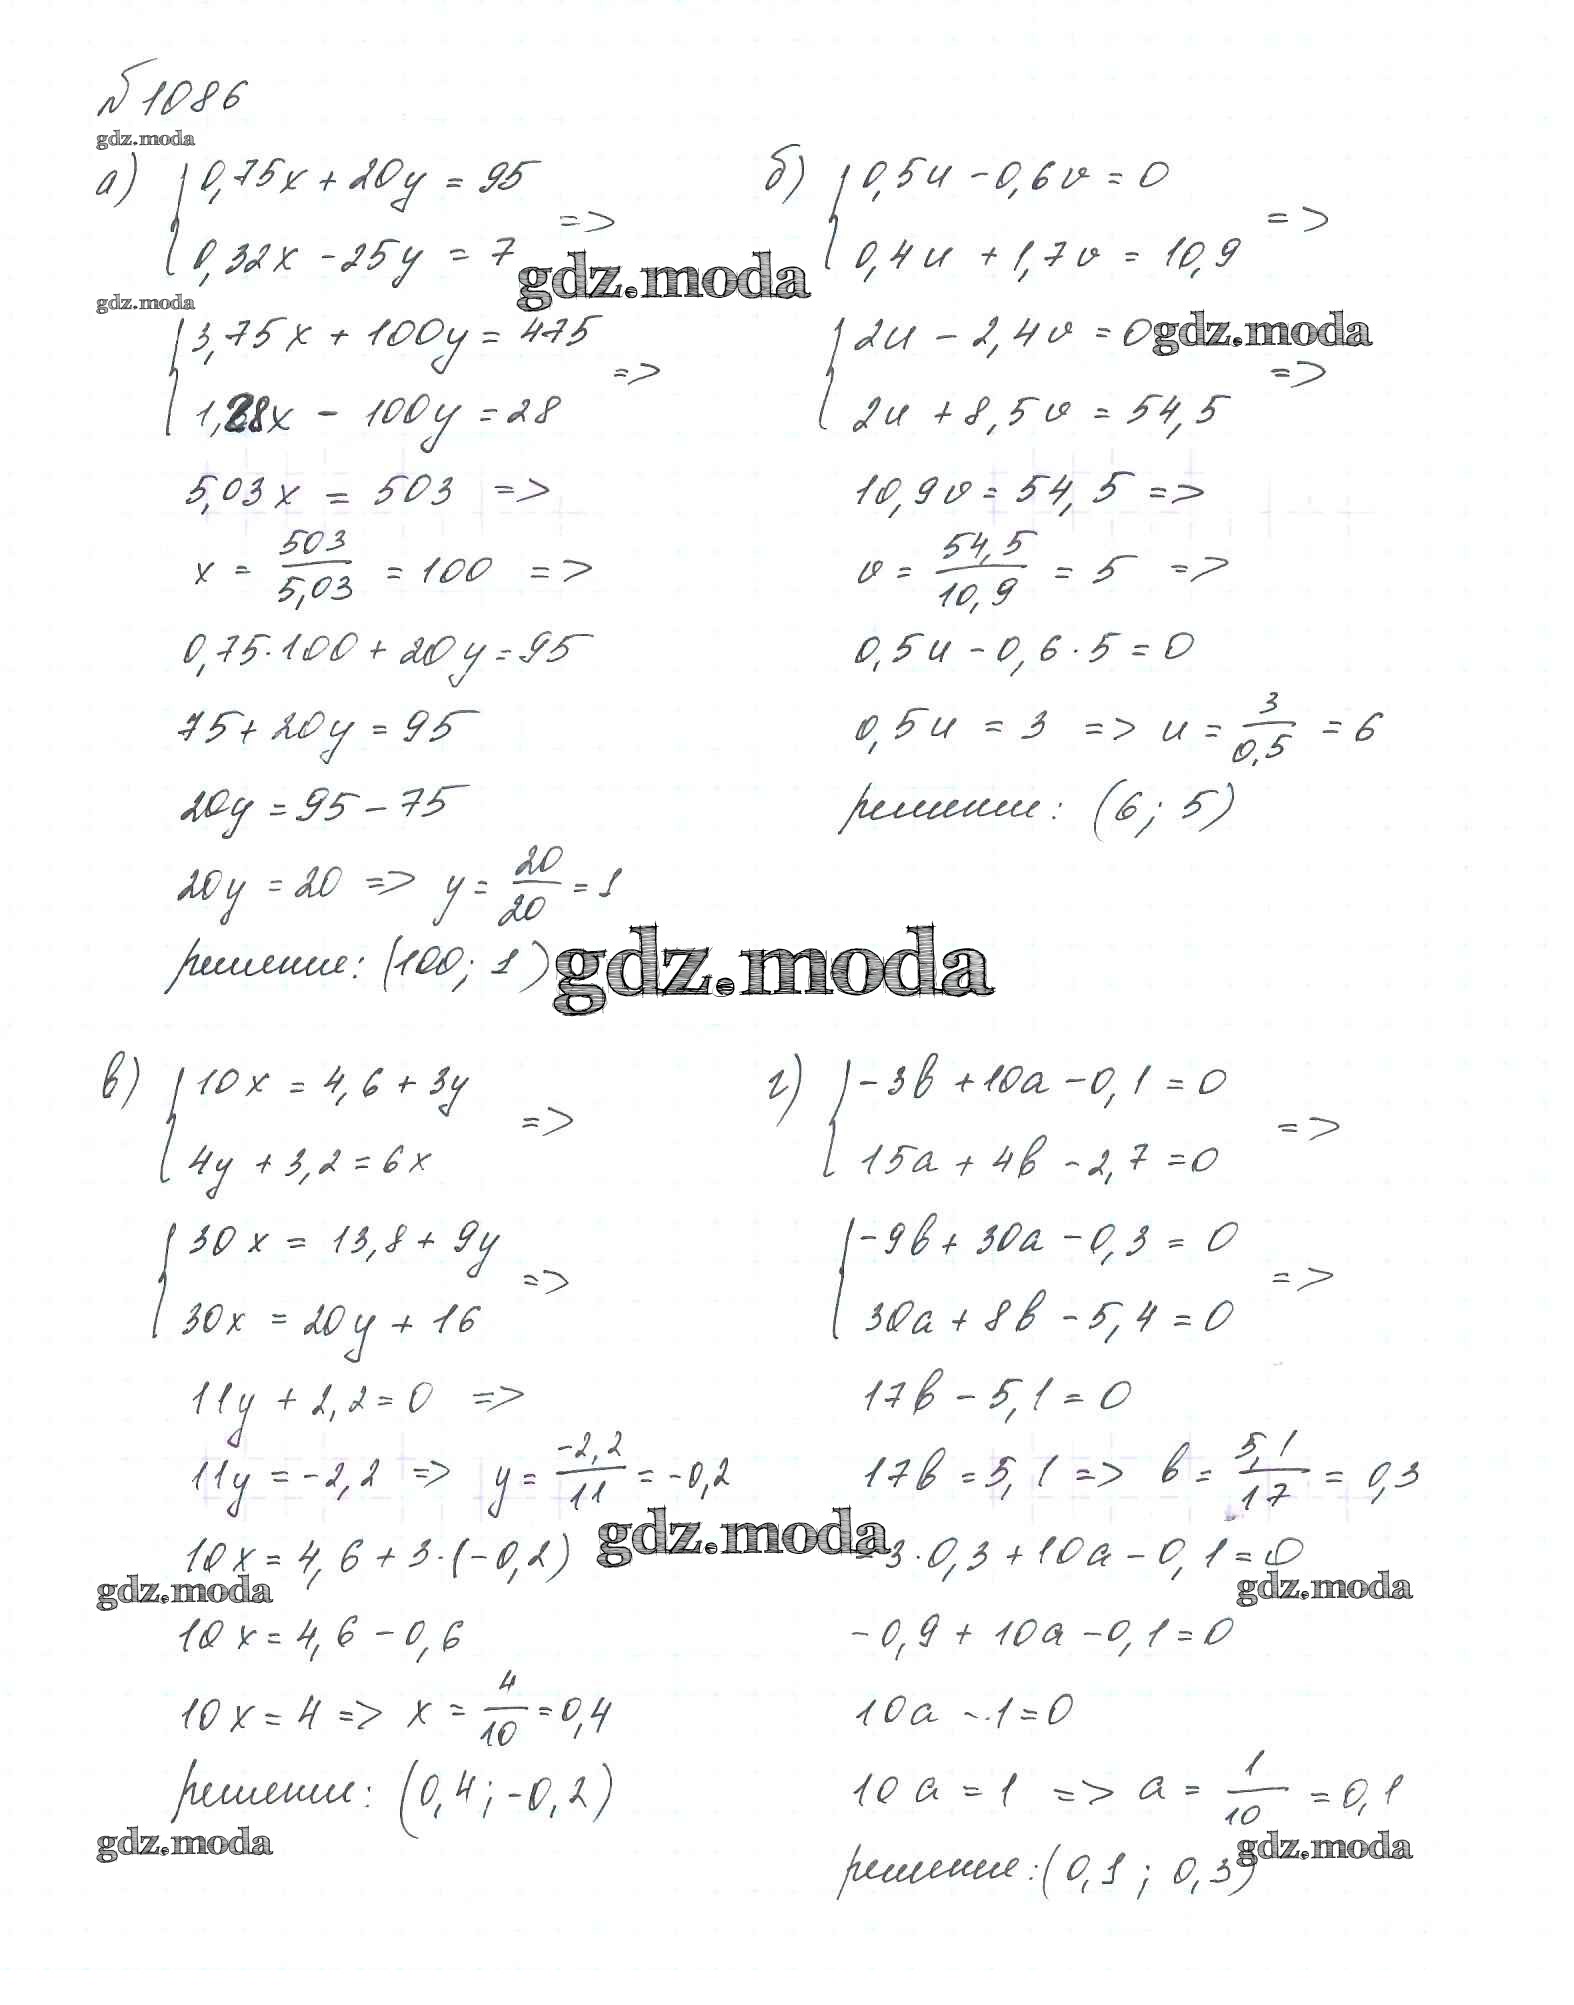 № 1086
gdz.moda
а) { 0,75x + 20y = 95
0,32x - 25y = 7 =>
gdz.moda
gdz.moda
{ 3,75x + 100y = 475
1,28x - 100y = 28 =>
5,03x = 503 =>
x = 503/5,03 = 100 =>
0,75·100 + 20y = 95
75 + 20y = 95
20y = 95 - 75
20y = 20 => y = 20/20 = 1
решение: (100; 1)
gdz.moda
б) { 0,5u - 0,6v = 0
0,4u + 1,7v = 10,9 =>
{ 2u - 2,4v = 0
gdz.moda
2u + 8,5v = 54,5 =>
10,9v = 54,5 =>
v = 54,5/10,9 = 5 =>
0,5u - 0,6·5 = 0
0,5u = 3 => u = 3/0,5 = 6
решение: (6; 5)
в) { 10x = 4,6 + 3y
4y + 3,2 = 6x =>
{ 30x = 13,8 + 9y
30x = 20y + 16 =>
11y + 2,2 = 0 =>
11y = -2,2 => y = -2,2/11 = -0,2
gdz.moda
10x = 4,6 + 3·(-0,2)
gdz.moda
10x = 4,6 - 0,6
10x = 4 => x = 4/10 = 0,4
решение: (0,4; -0,2)
gdz.moda
г) { -3b + 10a - 0,1 = 0
15a + 4b - 2,7 = 0 =>
{ -9b + 30a - 0,3 = 0
30a + 8b - 5,4 = 0 =>
17b - 5,1 = 0
17b = 5,1 => b = 5,1/17 = 0,3
-3·0,3 + 10a - 0,1 = 0
gdz.moda
-0,9 + 10a - 0,1 = 0
10a - 1 = 0
10a = 1 => a = 1/10 = 0,1
gdz.moda
решение: (0,1; 0,3)